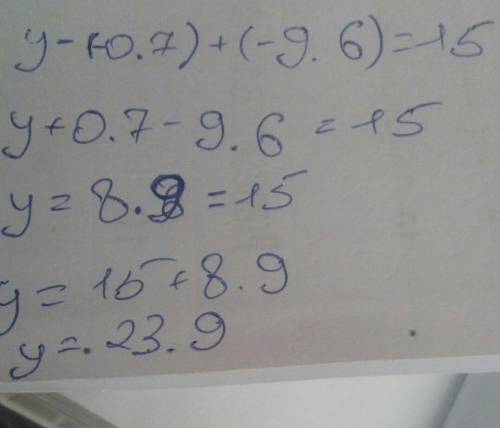 y-(-0.7)+(-9.6)=15
y+0.7-9.6=15
y=8.9=15
y=15+8.9
y=.23.9